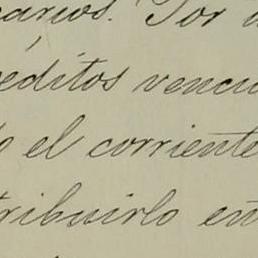 arios. Por
éditos vencid
o el corriente
tribuirlo en